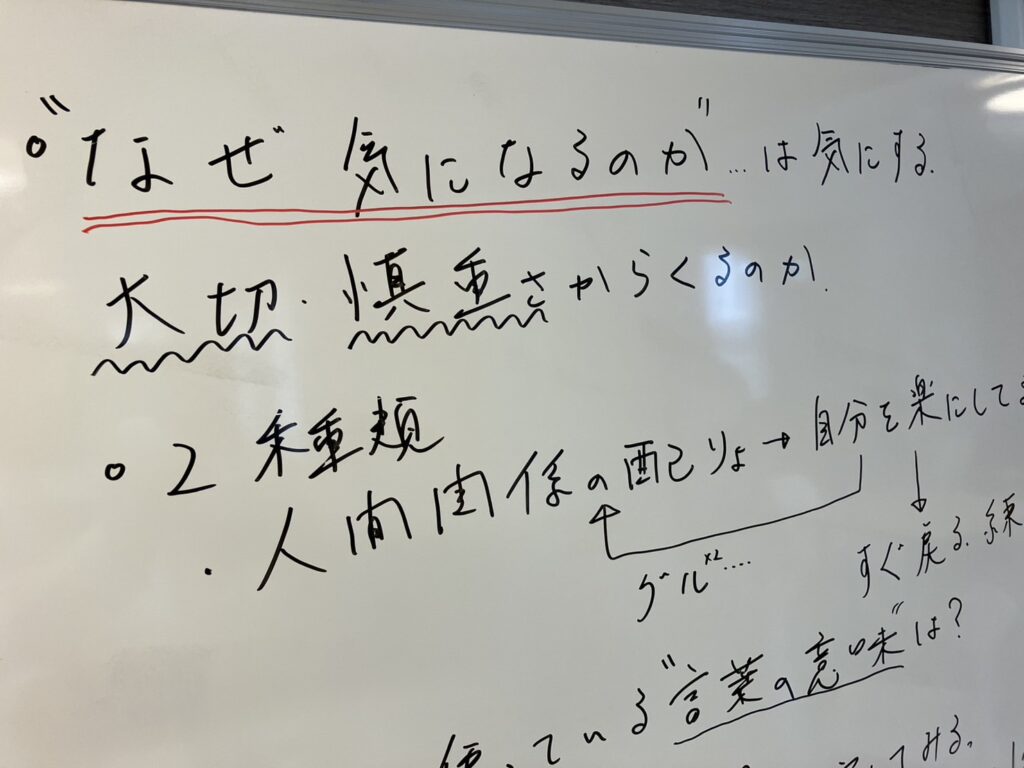 。"なぜ 気になるのか"…は気にする.
大切・慎重さからくるのか.
。2種類
・人間関係の配りょ→自分を楽にしてま
グル×2‥‥
すぐ戻る.練
ている"言葉の意味"は?
てみる.